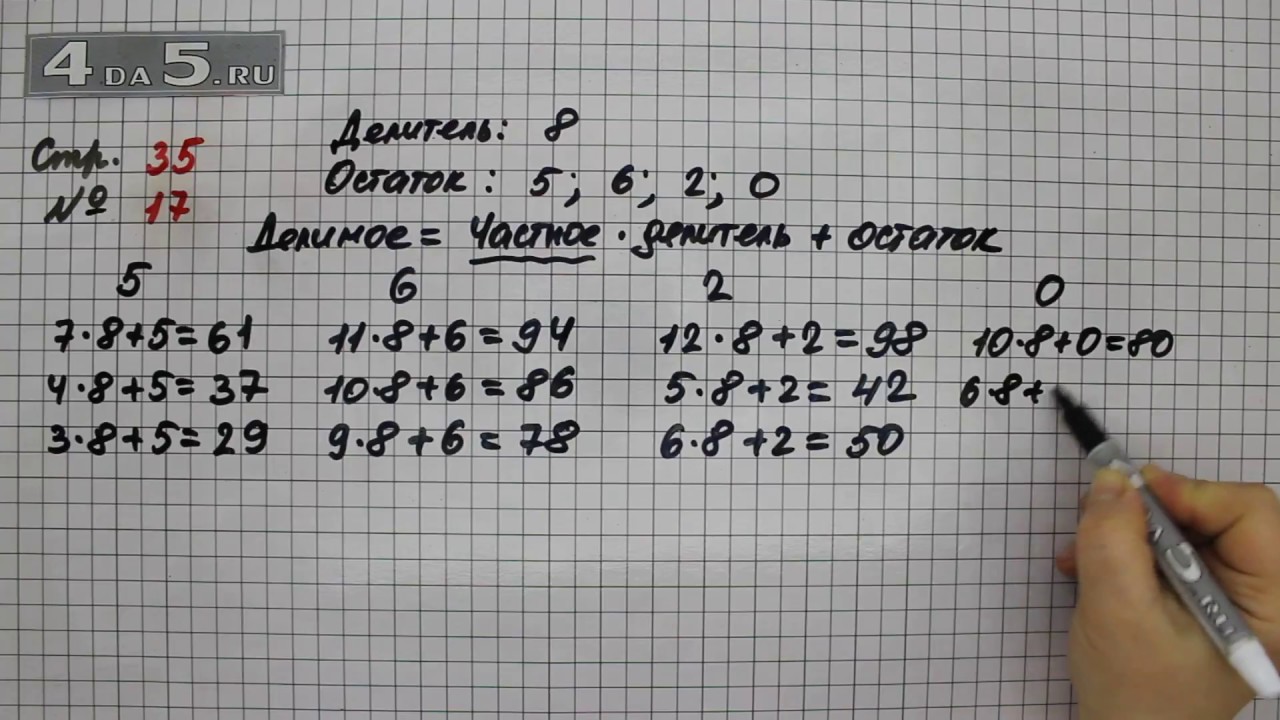 4DA5.RU
Стр. 35
№ 17
Делитель: 8
Остаток: 5; 6; 2; 0
Делимое = Частное · делитель + остаток
5 6 2 0
7·8+5=61 11·8+6=94 12·8+2=98 10·8+0=80
4·8+5=37 10·8+6=86 5·8+2=42 6·8+
3·8+5=29 9·8+6=78 6·8+2=50
5.RU